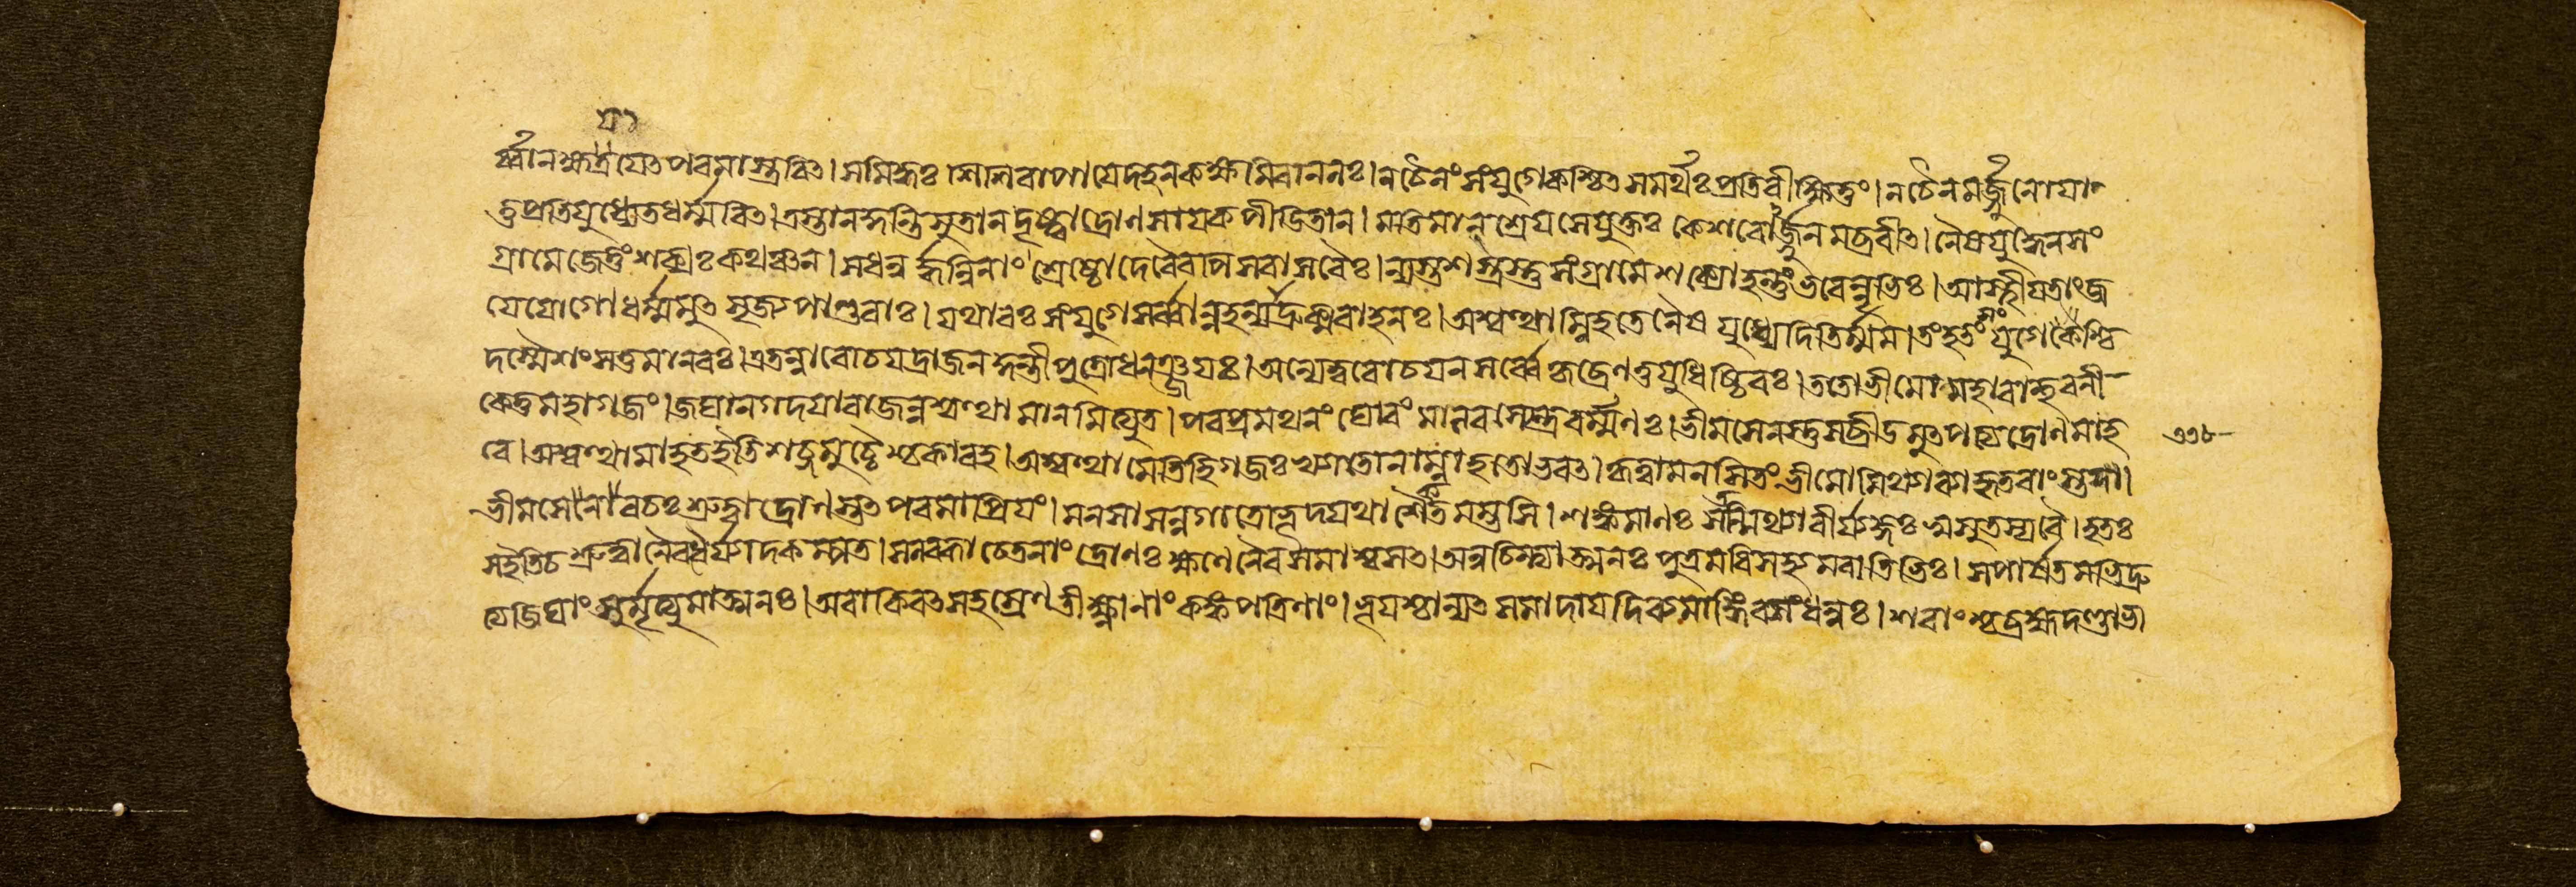 র্ব্বান ক্ষত্রিযেৎ পরমাস্ত্রবিৎ। সমিদ্ধঃ শিশিরাপাযে দহন কক্ষমিবানলঃ। ন চৈনং সংযুগে কশ্চিৎ সমর্থঃ প্রতিবীক্ষিতুং। ন চৈনমর্জ্জুনো যা
তু প্রতিযুধ্যেত ধর্ম্মবিৎ। ত্রস্তান কুন্তিসুতান দৃষ্ট্বা দ্রোণসাযকপীডিতান। মতিমান শ্রেযসে যুক্তঃ কেশবোর্জ্জুনমব্রবীৎ। নৈষ যুদ্ধেন সং
গ্রামে জেতুং শক্যঃ কথঞ্চন। সধনুর্দ্ধন্বিনাং শ্রেষ্ঠো দেবৈরপি সবাসবৈঃ। ন্যস্তশস্ত্রস্তু সংগ্রামে শক্যো হন্তুং ভবেন্নৃভিঃ। আস্থীযতাং জ
যে যোগো ধর্ম্মমুৎসৃজ্য পাণ্ডবাঃ। যথা বঃ সংযুগে সর্ব্বান্ন হন্যাদ্রুক্মবাহনঃ। অশ্বত্থাম্নি হতে নৈষ যুধ্যেদিতি র্ম্মম। তং হতং সংযুগে কশ্চি
দস্মৈ শংসতু মানবঃ। এতন্নারোচযদ্রাজন কুন্তীপুত্রো ধনঞ্জযঃ। অন্যে ত্বরোচযন সর্ব্বে কৃচ্ছ্রেণ তু যুধিষ্ঠিরঃ। ততো ভীমো মহাবাহুরনী
কেতু মহাগজং। জঘান গদযা রাজন্নশ্বত্থামানমিত্যুত। পরপ্রমথনং ঘোরং মালবস্যেন্দ্রবর্ম্মণঃ। ভীমসেনস্তু সব্রীডমুৎপত্য দ্রোণমাহ ২৩৮
বে। অশ্বত্থামা হত ইতি শব্দমুচ্চৈশ্চকার হ। অশ্বত্থামেতি হি গজঃ খ্যাতো নাম্না হতো ভবৎ। কৃত্বা মনসি তং ভীমো মিথ্যা ব্যাহৃতবাংস্তদা।
ভীমসেনবচঃ শ্রুত্বা দ্রোণস্তৎ পরমাপ্রিযং। মনসা সন্নগাত্রোভূদ্যথা সৈকতমম্ভসি। শঙ্কমানঃ স তন্মিথ্যা বীর্যজ্ঞঃ স্বসুতস্য বৈ। হতঃ
স ইতি চ শ্রুত্বা নৈব ধৈর্যাদকম্পত। স লব্ধ্বা চেতনাং দ্রোণঃ ক্ষণেনৈব সমাশ্বসৎ। অনুচিন্ত্যাত্মনঃ পুত্রমবিসহ্যমরাতিভিঃ। স পার্ষতমভিদ্রু
ত্য জিঘাংসুর্মৃত্যুমাত্মনঃ। অবাকিরৎ সহস্রেণ তীক্ষ্ণানাং কঙ্কপত্রিণাং। ধনুরন্যৎ সমাদায দিব্যমাঙ্গিরসং ধনুঃ। শরাংশ্চ ব্রহ্মদণ্ডাভ